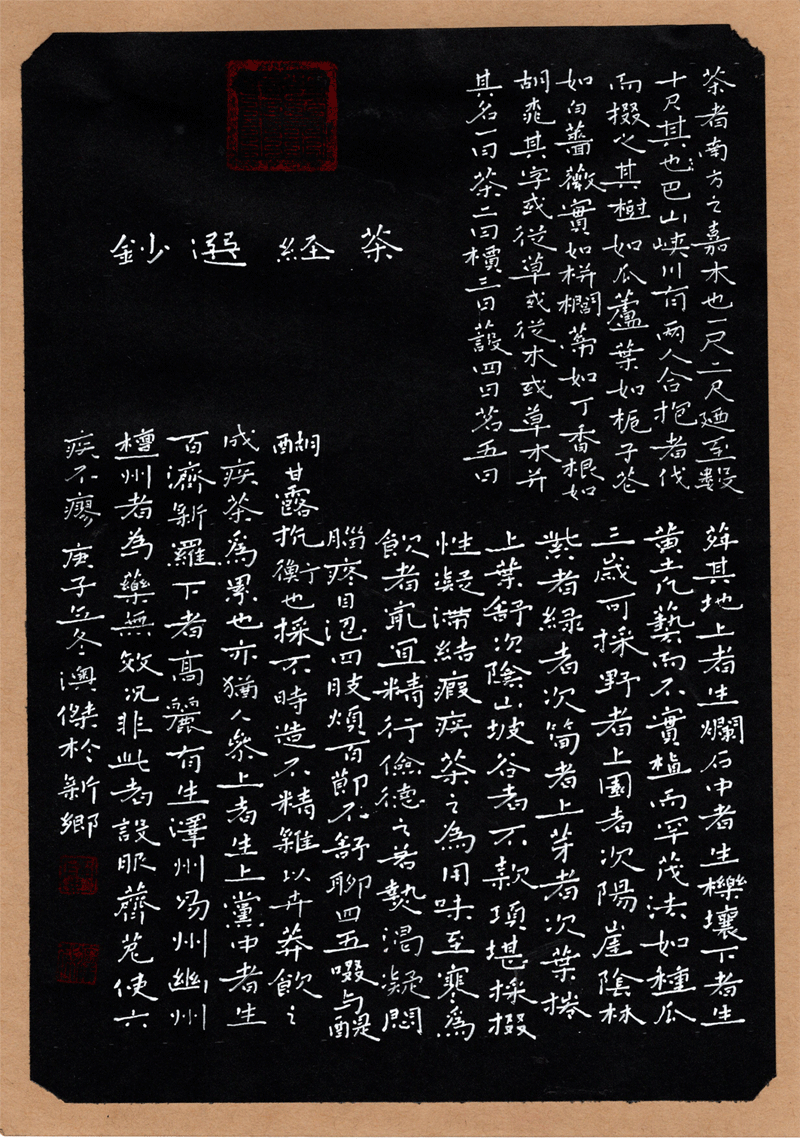 茶経選鈔
茶者南方之嘉木也一尺二尺廼至數
十尺其也巴山峽川有兩人合抱者伐
而掇之其樹如瓜蘆葉如梔子花
如白薔薇實如栟櫚蒂如丁香根如
胡桃其字或從草或從木或草木并
其名一曰茶二曰檟三曰蔎四曰茗五曰
荈其地上者生爛石中者生櫟壤下者生
黃土凡藝而不實植而罕茂法如種瓜
三歲可採野者上園者次陽崖陰林
紫者緑者次筍者上芽者次葉捲
上葉舒次陰山坡谷者不款項堪採掇
性凝滯結瘕疾茶之為用味至寒為
飲者最宜精行儉德之若熱渴凝悶
腦疼目澀四肢煩百節不舒聊四五啜与醍
醐甘露抗衡也採不時造不精雜以卉莽飲之
成疾茶為累也亦猶人參上者生上黨中者生
百濟新羅下者高麗有生澤州易州幽州
檀州者為藥無效況非此者設服薺苨使六
疾不瘳 庚子立冬澳傑於新鄉